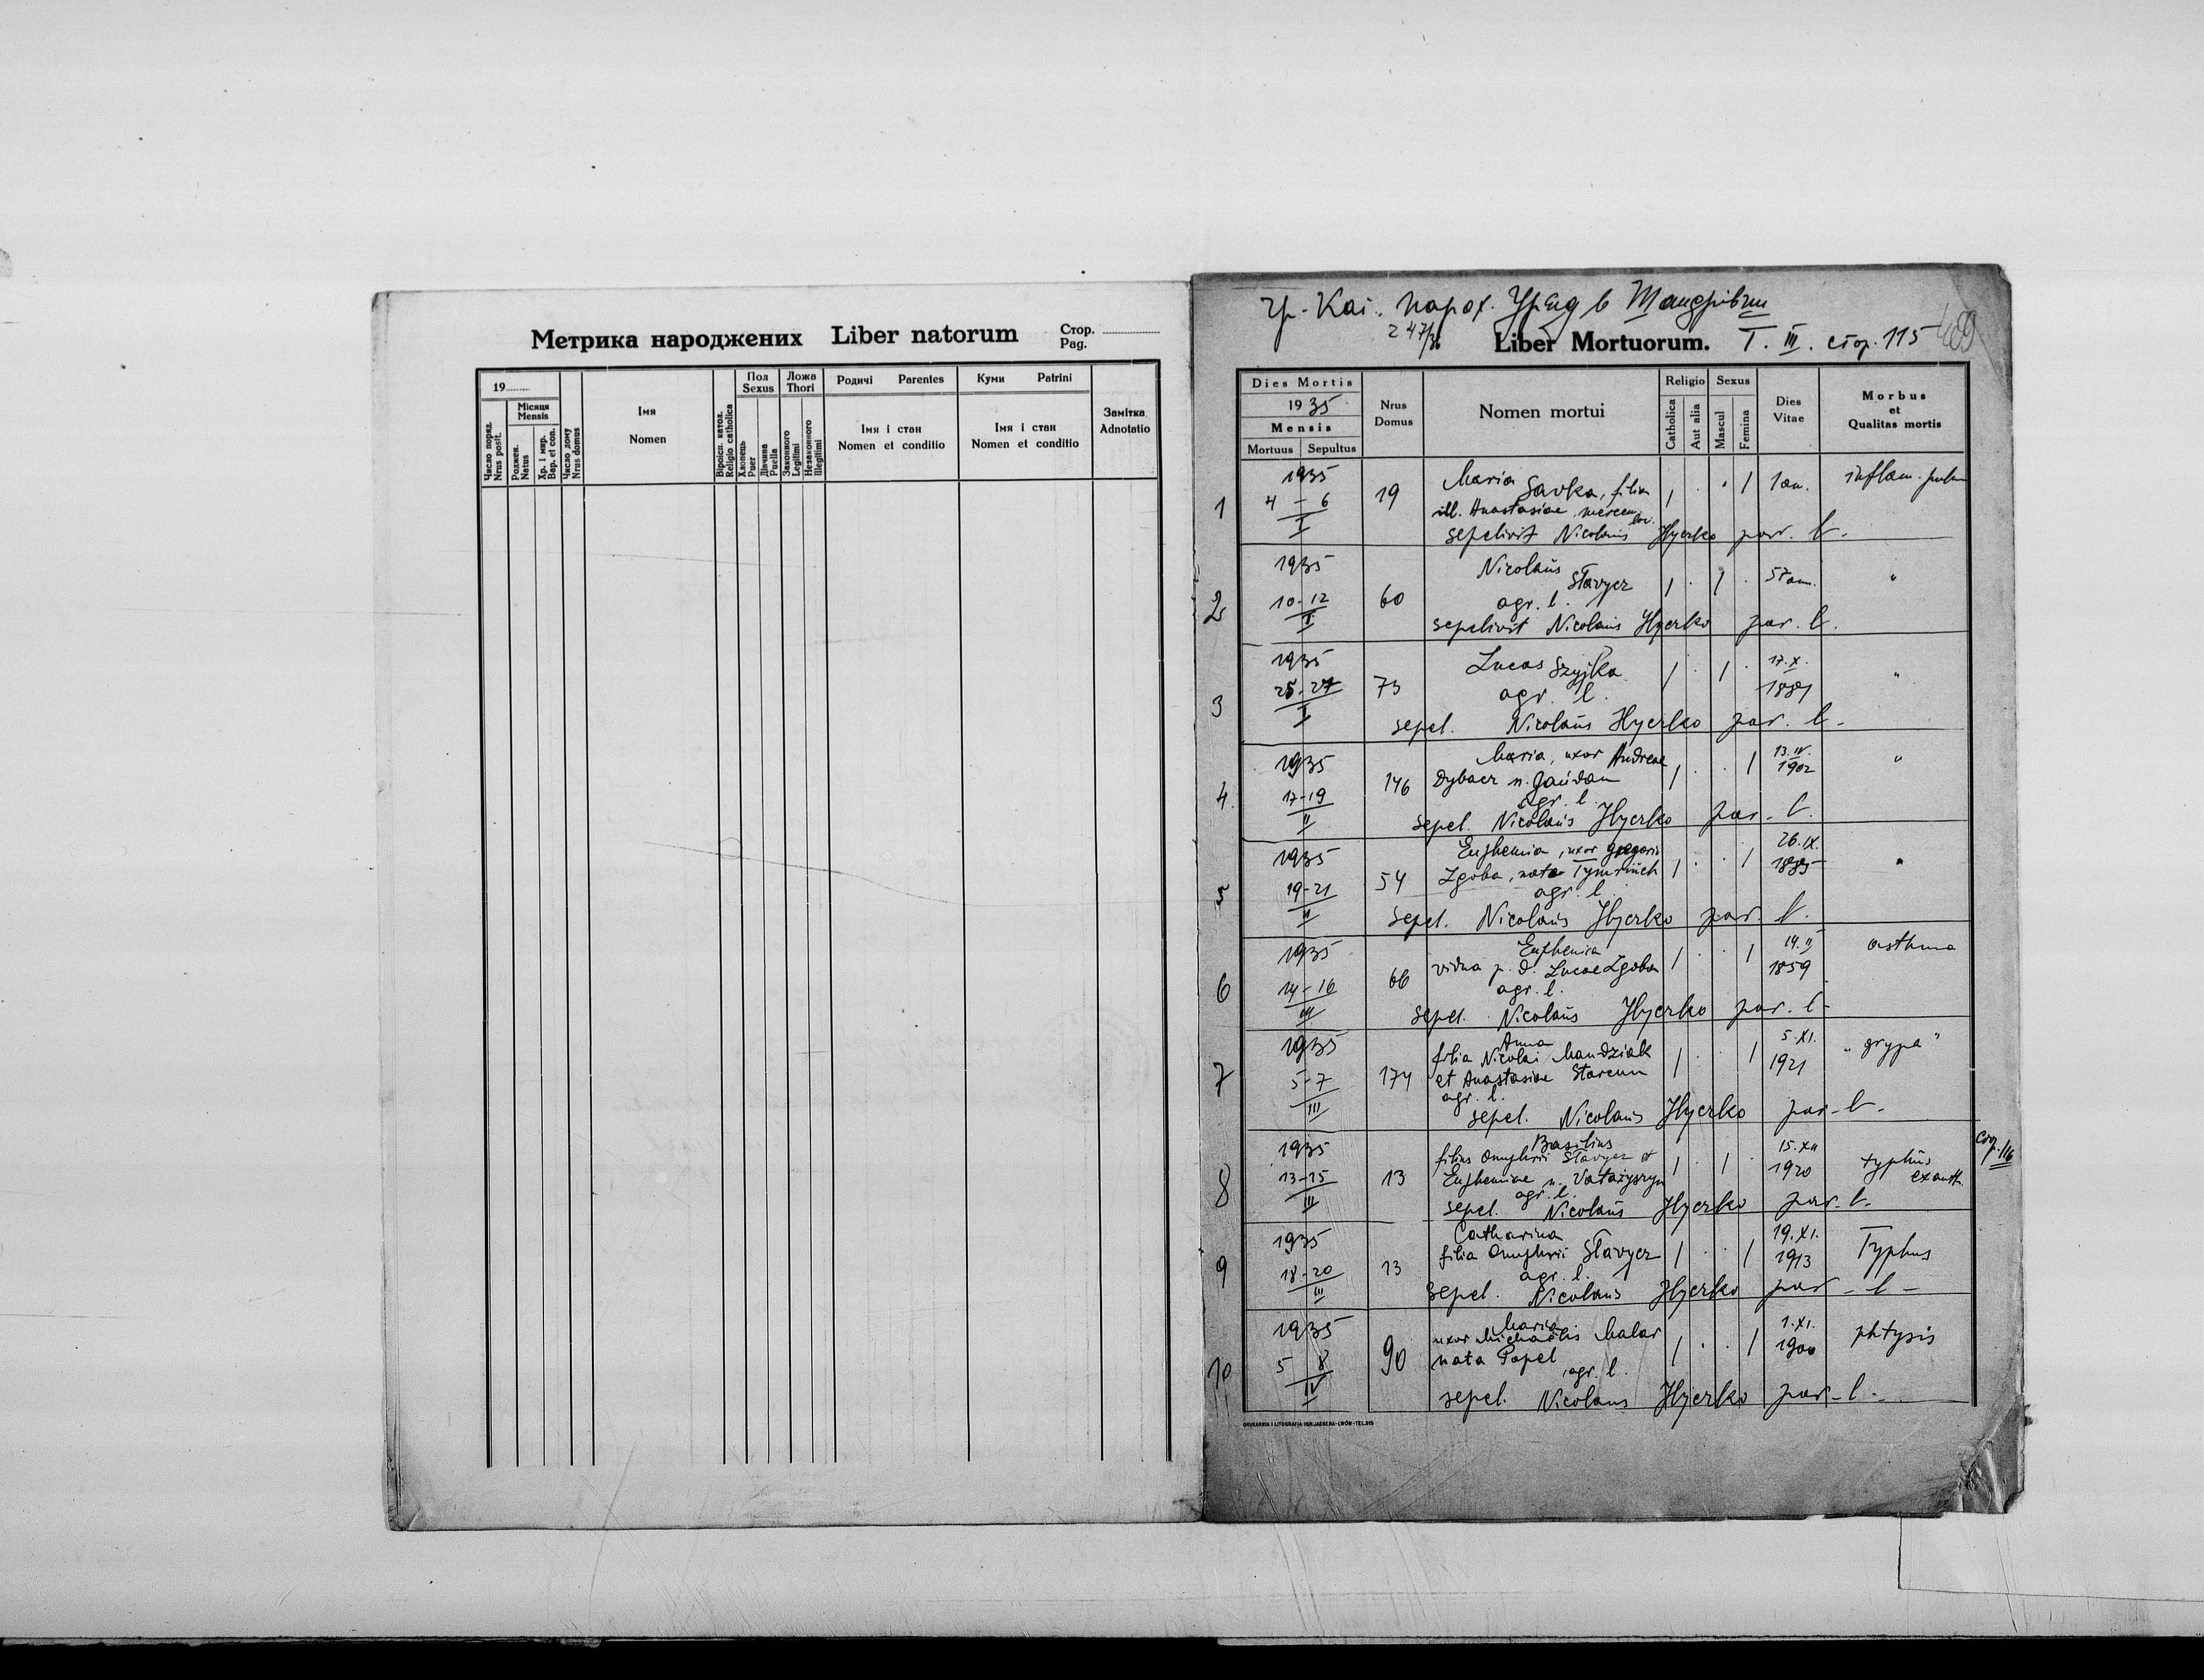 Метрика народжених Liber natorum Стор.
Pag.
19
Місяця
Mensis
Число поряд.
Nrus posit.
Роджен.
Natus
Хр. і мир.
Bap. et con.
Число дому
Nrus domus
Імя
Nomen
Віроісп. катол.
Religio catholica
Пол
Sexus
Хлопець
Puer
Дівчина
Puella
Ложа
Thori
Законного
Legitimi
Незаконного
Illegitimi
Родичі Parentes
Імя і стан
Nomen et conditio
Куми Patrini
Імя і стан
Nomen et conditio
Замітка
Adnotatio
Гр.-Кат. парох. Уряд в
247/36 Liber Mortuorum. Т. III. стор. 115
Dies Mortis
1935
Mensis
Mortuus Sepultus
Nrus
Domus
Nomen mortui
Religio
Catholica
Aut alia
Sexus
Mascul
Femina
Dies
Vitae
Morbus
et
Qualitas mortis
1 1935
4 - 6
I
19
Maria
Savka, filia
ill. Anastasiae,
1 an.
inflam. pulm
sepelivit Nicolaus Hyerko par. l.
2 1935
10-12
I
60
Nicolaus
Stavycz
agr. l.
57 ann.
"
sepelivit Nicolaus Hyerko par. l.
3 1935
25-27
I
73
Lucas Szyjka
agr. l.
17.X.
1881
"
sepel. Nicolaus Hyerko par. l.
4. 1935
17-19
II
146
Maria, uxor Andreae
Dybacz n.
agr. l.
13.IV.
1902
"
sepel. Nicolaus Hyerko par. l.
5 1935
19-21
II
54
Euphemia, uxor Gregorii
Zgoba, nata
agr. l.
26.IX.
1885
"
sepel. Nicolaus Hyerko par. l.
6 1935
14-16
III
66
Euphemia
vidua p. d. Lucae Zgoba
agr. l.
14.II
1859
asthma
sepel. Nicolaus Hyerko par. l.
7 1935
5-7
III
174
Anna
filia Nicolai Mandziak
et Anastasiae
agr. l.
5.XI.
1921
"grypa"
sepel. Nicolaus Hyerko par. l.
8 1935
13-15
III
13
Basilius
filius Onuphrii Stavycz et
Euphemiae n.
agr. l.
15.XII
1920
typhus
exanth.
стор. 116
sepel. Nicolaus Hyerko par. l.
9 1935
18-20
III
13
Catharina
filia Onuphrii Stavycz
agr. l.
19.XI.
1913
Typhus
sepel. Nicolaus Hyerko par. l.
10 1935
5 8
IV
90
Maria
uxor Michaelis Malar
nata Popel
agr. l.
1.XI.
1900
phtysis
sepel. Nicolaus Hyerko par. l.